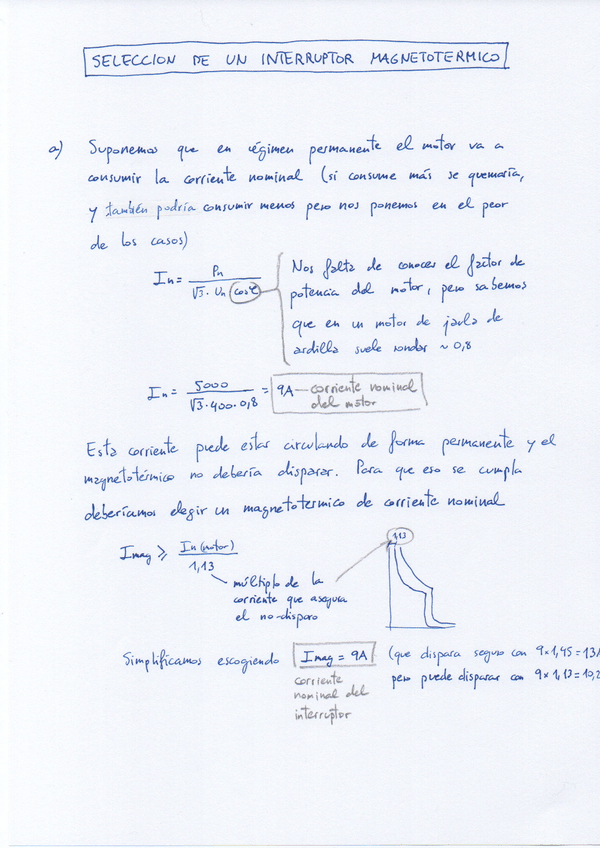 SELECCION DE UN INTERRUPTOR MAGNETOTERMICO
a) Suponemos que en régimen permanente el motor va a
consumir la corriente nominal (si consume más se quemaría,
y también podría consumir menos pero nos ponemos en el peor
de los casos)
In = Pn / √3 · Un cos φ
Nos falta de conocer el factor de
potencia del motor, pero sabemos
que en un motor de jaula de
ardilla suele rondar ~ 0,8
In = 5000 / √3·400·0,8 = 9A — corriente nominal
del motor
Esta corriente puede estar circulando de forma permanente y el
magnetotérmico no debería disparar. Para que eso se cumpla
deberíamos elegir un magnetotermico de corriente nominal
Imag ≥ In (motor) / 1,13
1,13
múltiplo de la
corriente que asegura
el no-disparo
Simplificamos escogiendo Imag = 9A (que dispara seguro con 9×1,45 = 13A
pero puede disparar con 9×1,13 = 10,2
corriente
nominal del
interruptor